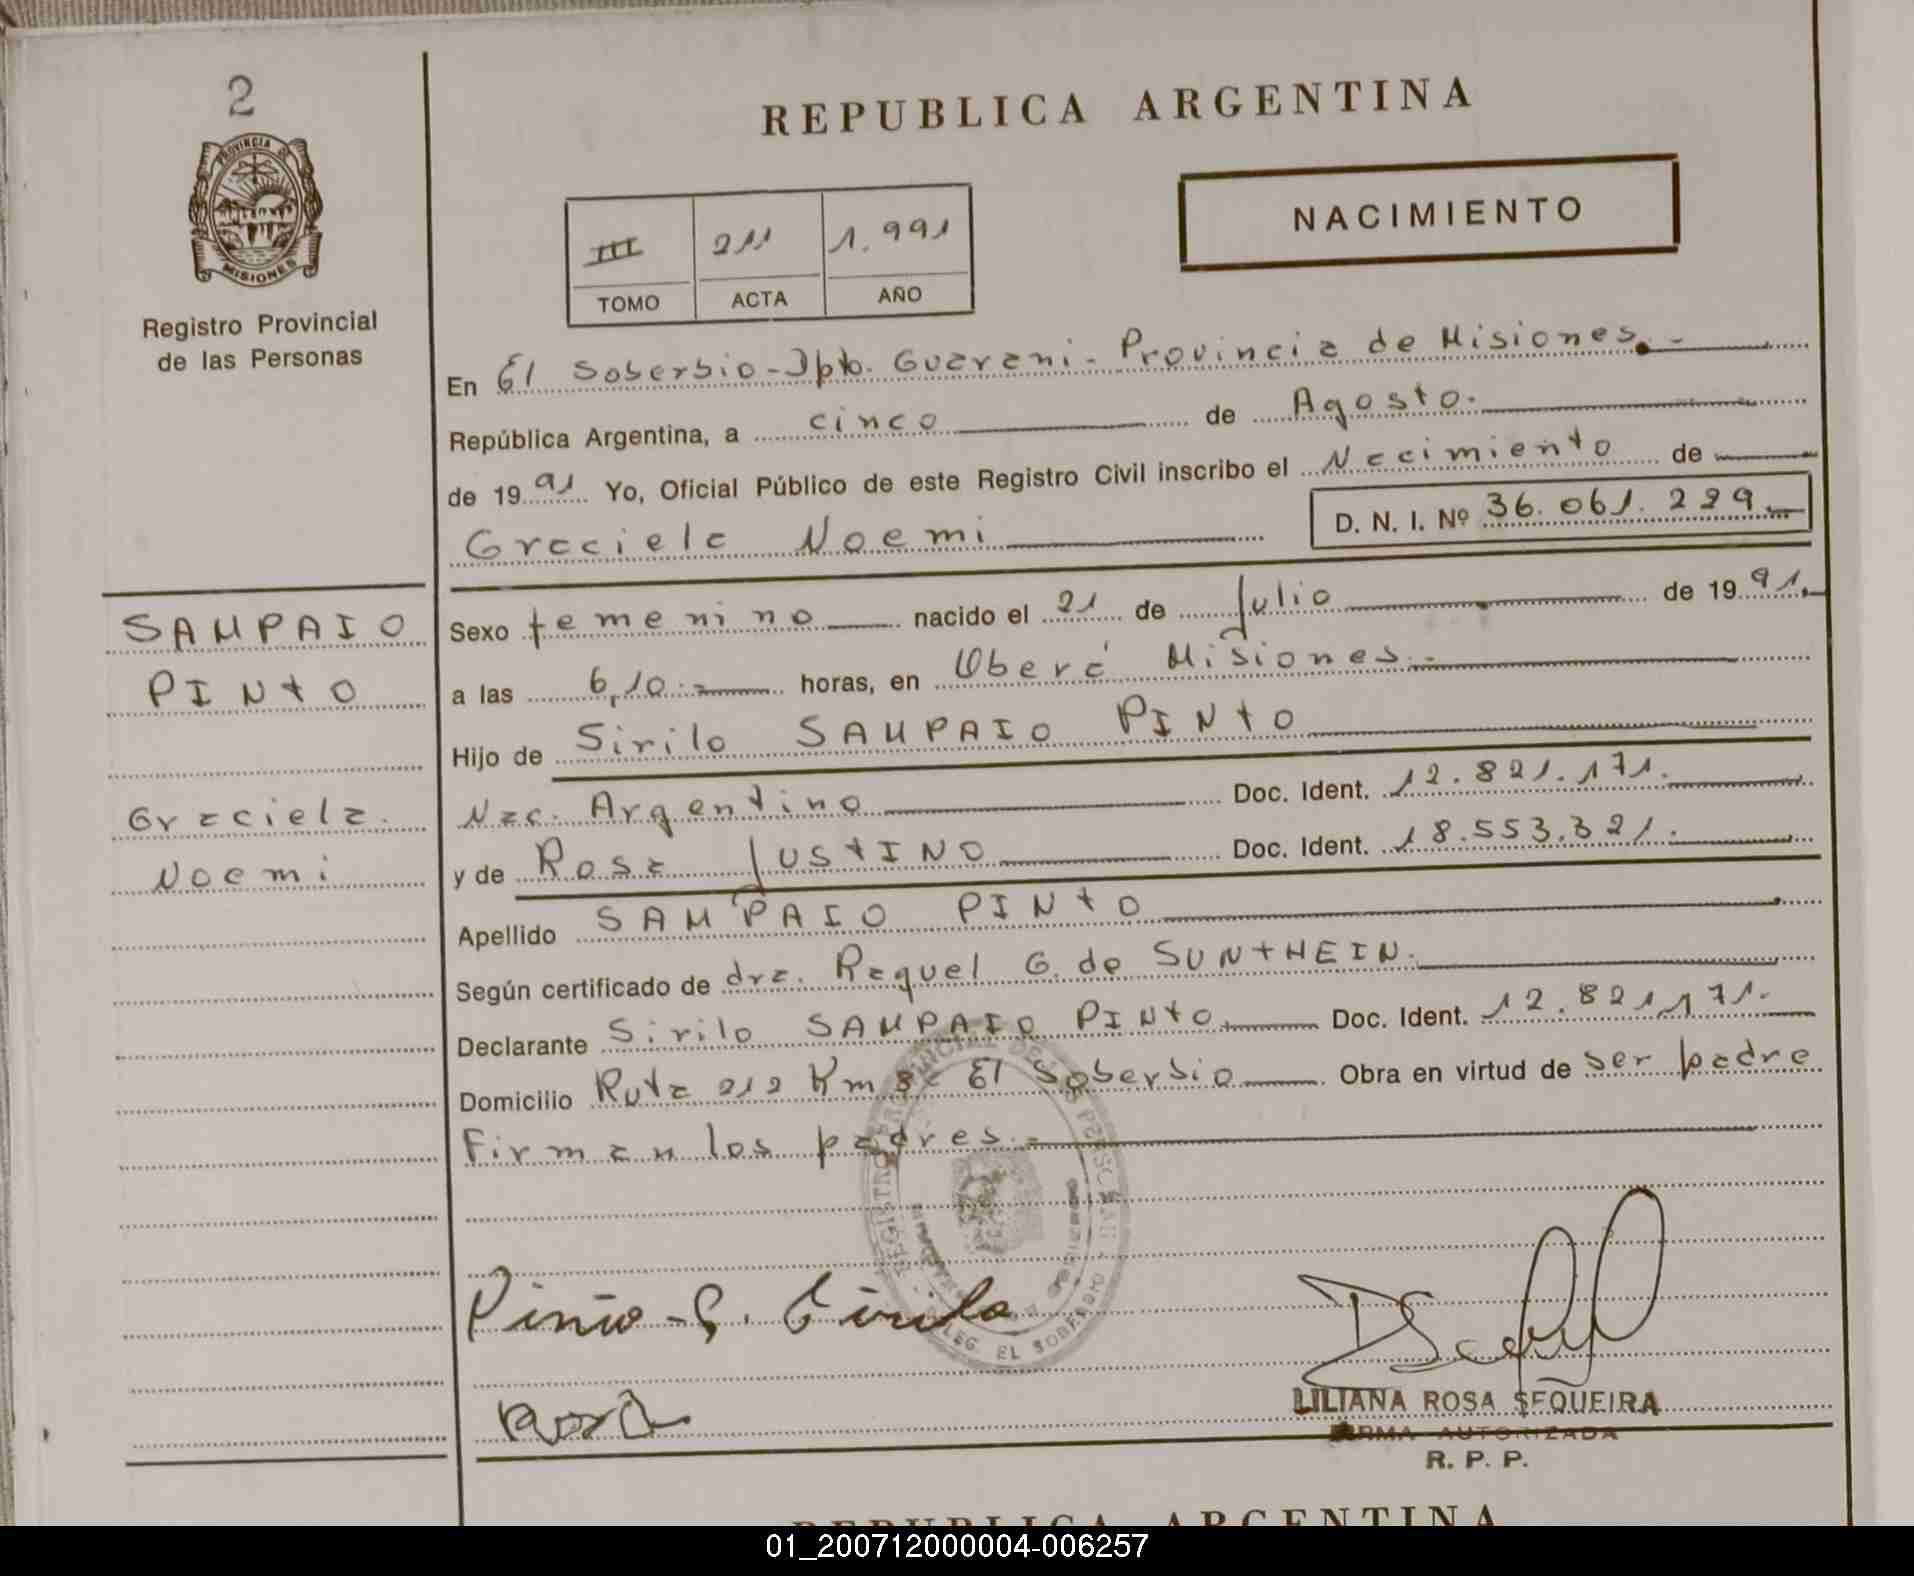 2
PROVINCIA DE
MISIONES
Registro Provincial
de las Personas
SAMPAIO
PINTO
Graciela
Noemi
REPUBLICA ARGENTINA
NACIMIENTO
III 211 1.991
TOMO ACTA AÑO
En El Soberbio - Dpto. Guarani - Provincia de Misiones.-
República Argentina, a cinco de Agosto.
de 1991 Yo, Oficial Público de este Registro Civil inscribo el Nacimiento de
Graciela Noemi D. N. I. Nº 36.061.229.
Sexo femenino nacido el 21 de Julio de 1991.
a las 6,10.- horas, en Oberá Misiones.-
Hijo de Sirilo SAMPAIO PINTO
Nac. Argentino Doc. Ident. 12.821.171.
y de Rosa JUSTINO Doc. Ident. 18.553.321.
Apellido SAMPAIO PINTO
Según certificado de dra. Raquel G. de SUNTHEIN.
Declarante Sirilo SAMPAIO PINTO Doc. Ident. 12.821.171.
Domicilio Ruta 212 Km El Soberbio Obra en virtud de ser padre
Firman los padres.-
REGISTRO PROVINCIAL DE LAS PERSONAS
DELEG. EL SOBERBIO
Rosa
LILIANA ROSA SEQUEIRA
FIRMA AUTORIZADA
R. P. P.
REPUBLICA ARGENTINA
01_200712000004-006257